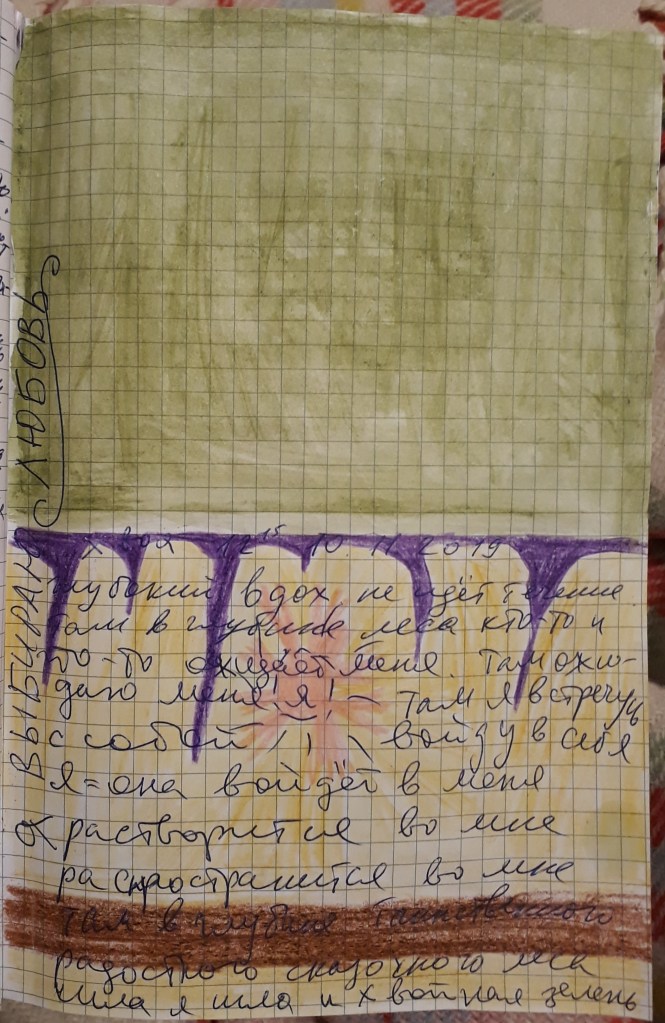 Я ВЫБИРАЮ ЛЮБОВЬ
Хвоя 12 15 10. 11 2019
глубокий вдох не идёт течение
там в глубине леса кто-то и
что-то ожидает меня. Там ожи-
даю меня! я! – там я встречусь
с собой войду в себя
я = она войдёт в меня
растворится во мне
распространится во мне
там в глубине таинственного
радостного сказочного леса
шла я шла и хвойная зелень